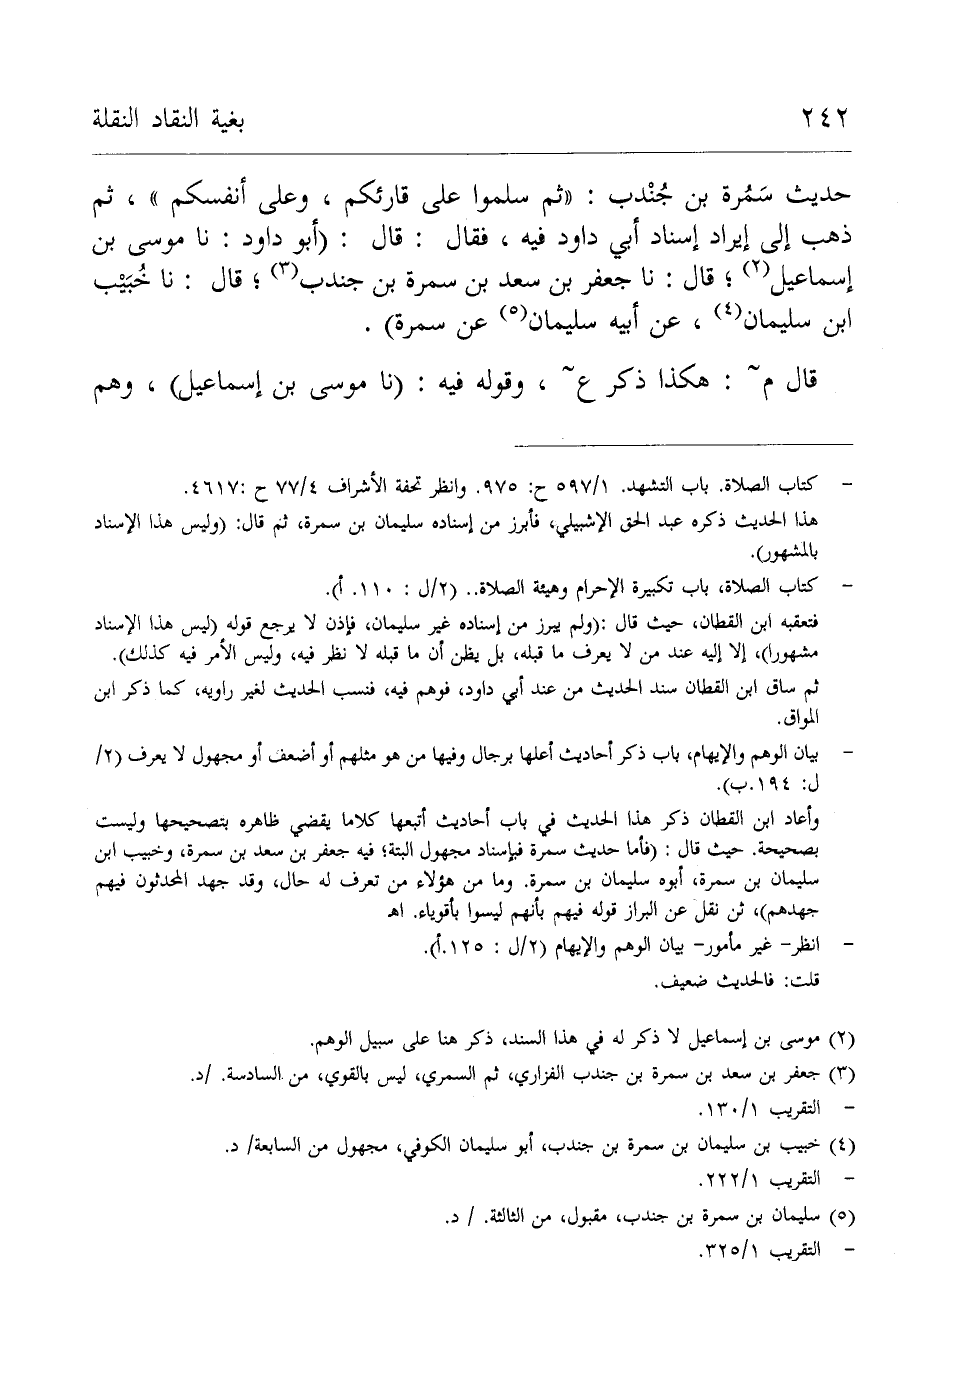 ٢٤٢ بغية النقاد النقلة
حديث سَمُرة بن جُنْدب : «ثم سلموا على قارئكم ، وعلى أنفسكم » ، ثم
ذهب إلى إيراد إسناد أبي داود فيه ، فقال : قال : (أبو داود : نا موسى بن
إسماعيل(٢) ؛ قال : نا جعفر بن سعد بن سمرة بن جندب(٣) ؛ قال : نا خُبَيْب
ابن سليمان(٤) ، عن أبيه سليمان(٥) عن سمرة) .
قال م~ : هكذا ذكر ع~ ، وقوله فيه : (نا موسى بن إسماعيل) ، وهم
- كتاب الصلاة. باب التشهد. ٥٩٧/١ ح: ٩٧٥. وانظر تحفة الأشراف ٧٧/٤ ح :٤٦١٧.
هذا الحديث ذكره عبد الحق الإشبيلي، فأبرز من إسناده سليمان بن سمرة، ثم قال: (وليس هذا الإسناد
بالمشهور).
- كتاب الصلاة، باب تكبيرة الإحرام وهيئة الصلاة.. (٢/ل : ١١٠. أ).
فتعقبه ابن القطان، حيث قال :(ولم يبرز من إسناده غير سليمان، فإذن لا يرجع قوله (ليس هذا الإسناد
مشهورا)، إلا إليه عند من لا يعرف ما قبله، بل يظن أن ما قبله لا نظر فيه، وليس الأمر فيه كذلك).
ثم ساق ابن القطان سند الحديث من عند أبي داود، فوهم فيه، فنسب الحديث لغير راويه، كما ذكر ابن
المواق.
- بيان الوهم والإيهام، باب ذكر أحاديث أعلها برجال وفيها من هو مثلهم أو أضعف أو مجهول لا يعرف (٢/
ل: ١٩٤.ب).
وأعاد ابن القطان ذكر هذا الحديث في باب أحاديث أتبعها كلاما يقضي ظاهره بتصحيحها وليست
بصحيحة. حيث قال : (فأما حديث سمرة فبإسناد مجهول البتة؛ فيه جعفر بن سعد بن سمرة، وخبيب ابن
سليمان بن سمرة، أبوه سليمان بن سمرة. وما من هؤلاء من تعرف له حال، وقد جهد المحدثون فيهم
جهدهم)، ثن نقل عن البراز قوله فيهم بأنهم ليسوا بأقوياء. اهـ
- انظر- غير مأمور- بيان الوهم والإيهام (٢/ل : ١٢٥.أ).
قلت: فالحديث ضعيف.
(٢) موسى بن إسماعيل لا ذكر له في هذا السند، ذكر هنا على سبيل الوهم.
(٣) جعفر بن سعد بن سمرة بن جندب الفزاري، ثم السمري، ليس بالقوي، من السادسة. /د.
- التقريب ١٣٠/١.
(٤) خبيب بن سليمان بن سمرة بن جندب، أبو سليمان الكوفي، مجهول من السابعة/ د.
- التقريب ٢٢٢/١.
(٥) سليمان بن سمرة بن جندب، مقبول، من الثالثة. / د.
- التقريب ٣٢٥/١.